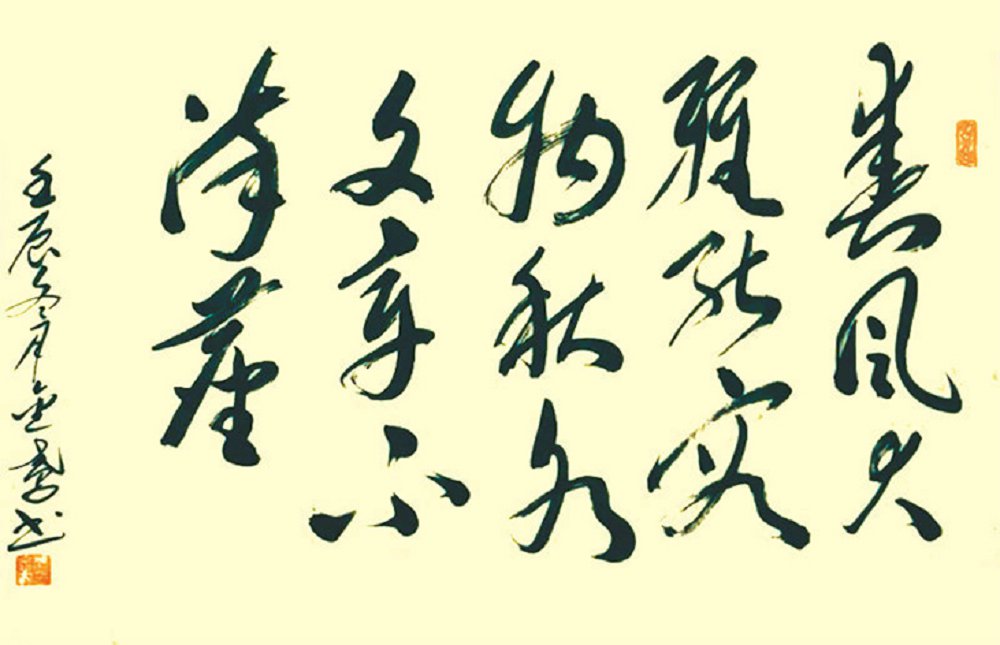 春風大
雅能容
物秋水
文章不
染塵
壬辰冬月書